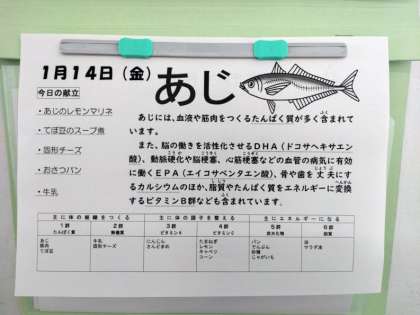 1月14日（金） あじ
今日の献立
・あじのレモンマリネ
・てぼ豆のスープ煮
・固形チーズ
・おさつパン
・牛乳
あじには、血液や筋肉をつくるたんぱく質が多く含まれて
います。
また、脳の働きを活性化させるDHA（ドコサヘキサエン
酸）、動脈硬化や脳梗塞、心筋梗塞などの血管の病気に有効
に働くEPA（エイコサペンタエン酸）、骨や歯を丈夫にす
るカルシウムのほか、脂質やたんぱく質をエネルギーに変換
するビタミンB群なども含まれています。
主に体の組織をつくる 主に体の調子を整える 主にエネルギーになる
1群 2群 3群 4群 5群 6群
たんぱく質 無機質 ビタミンA ビタミンC 炭水化物 脂質
あじ 牛乳 にんじん たまねぎ パン 油
豚肉 固形チーズ さんどまめ レモン でんぷん サラダ油
てぼ豆 キャベツ 砂糖
コーン じゃがいも